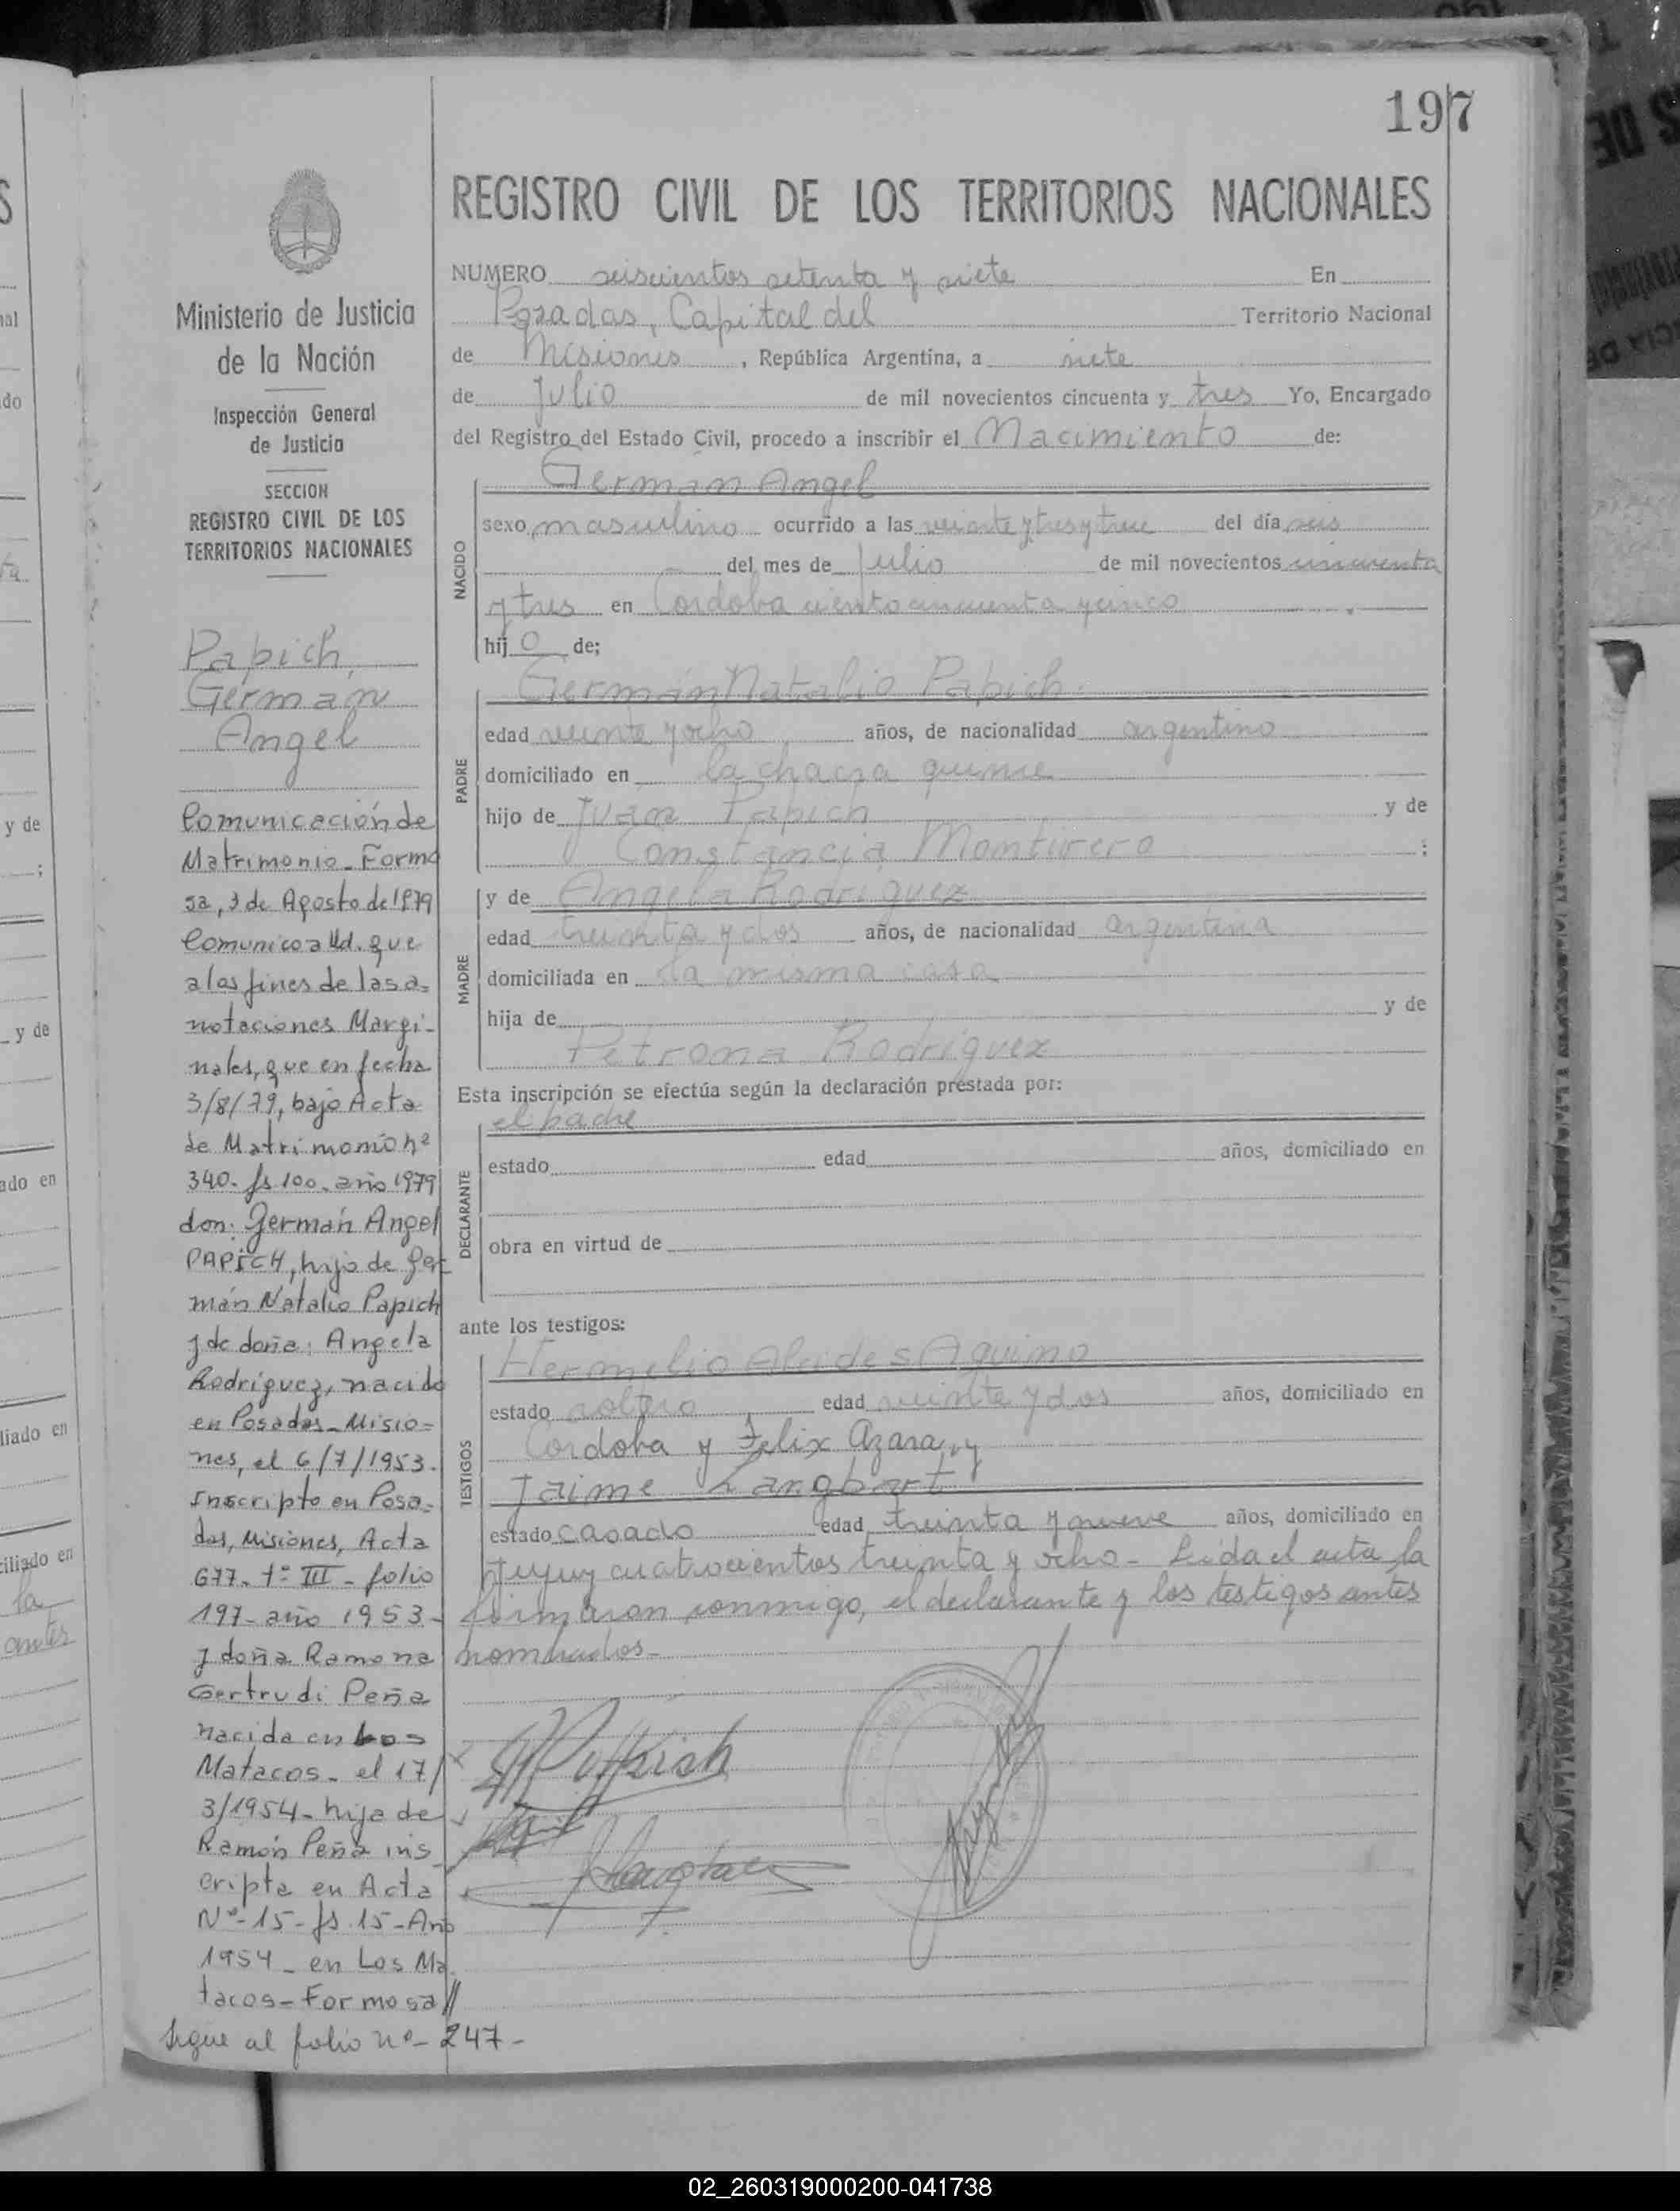 197
REGISTRO CIVIL DE LOS TERRITORIOS NACIONALES
NUMERO seiscientos setenta y siete En
Posadas, Capital del Territorio Nacional
de Misiones, República Argentina, a siete
de Julio de mil novecientos cincuenta y tres Yo, Encargado
del Registro del Estado Civil, procedo a inscribir el Nacimiento de:
NACIDO
Germán Angel
sexo masculino ocurrido a las veinte y tres y trece del día seis
del mes de Julio de mil novecientos cincuenta
y tres en Cordoba ciento cincuenta y cinco
hijo de;
PADRE
Germán Natalio Papich
edad veinte y ocho años, de nacionalidad argentino
domiciliado en la chacra quince
hijo de Juan Papich y de
Constancia ;
MADRE
y de Angela Rodriguez
edad treinta y dos años, de nacionalidad argentina
domiciliada en la misma casa
hija de y de
Petrona Rodriguez
Esta inscripción se efectúa según la declaración prestada por:
DECLARANTE
el padre
estado edad años, domiciliado en
obra en virtud de
ante los testigos:
TESTIGOS
Hermelio Alcides Aquino
estado soltero edad veinte y dos años, domiciliado en
Cordoba y Felix Azara, y
Jaime
estado casado edad treinta y nueve años, domiciliado en
Jujuy cuatrocientos treinta y ocho - Leida el acta la
firmaron conmigo, el declarante y los testigos antes
nombrados -
Ministerio de Justicia
de la Nación
Inspección General
de Justicia
SECCION
REGISTRO CIVIL DE LOS
TERRITORIOS NACIONALES
Papich,
Germán
Angel
Comunicación de
Matrimonio - Formo
sa, 3 de Agosto de 1979
Comunico a Ud. que
a los fines de las a-
notaciones Margi-
nales, que en fecha
3/8/79, bajo Acta
de Matrimonio nº
340 - fs 100 - año 1979
don: Germán Angel
PAPICH, hijo de Ger
mán Natalio Papich
y de doña: Angela
Rodriguez, nacido
en Posadas - Misio=
nes, el 6/7/1953.
Inscripto en Posa-
das, Misiones, Acta
677 - tº III - folio
197 - año 1953 -
y doña Ramona
Gertrudi Peña
nacida en Los
Matacos - el 17/
3/1954 - hija de
Ramón Peña ins
cripta en Acta
Nº - 15 - fs. 15 - Año
1954 - en Los Ma
tacos - Formosa //
Sigue al folio nº - 247 -
y de
ado en
liado en
la
antes
02_260319000200-041738